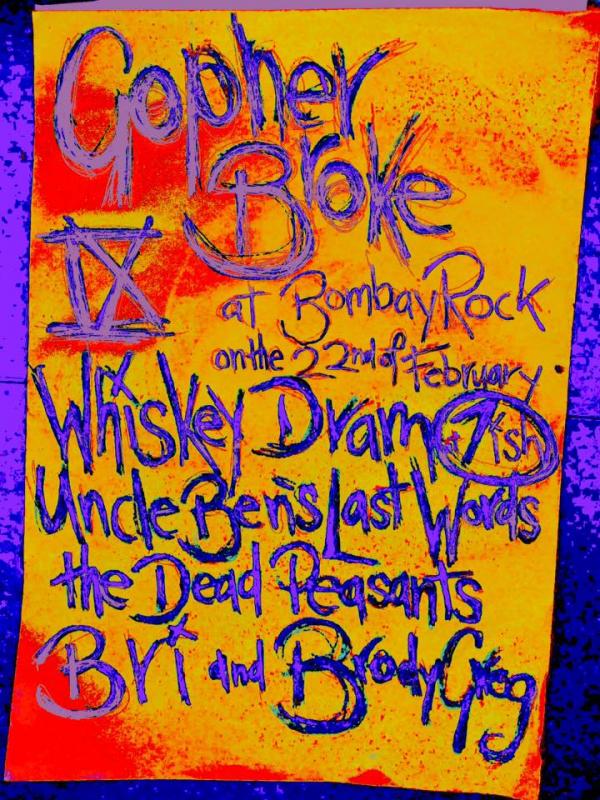 Gopher
Broke
IX
at Bombay Rock
on the 22nd of February
Whiskey Dram +7ish
Uncle Ben's Last Words
the Dead Peasants
Bri and Brody Greg